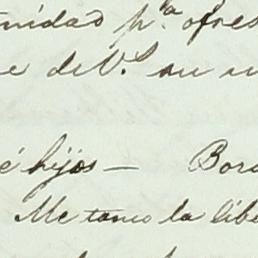 nidad p.ª ofres
e de V.S. su u
é hijos — Bord
Me tomo la libe